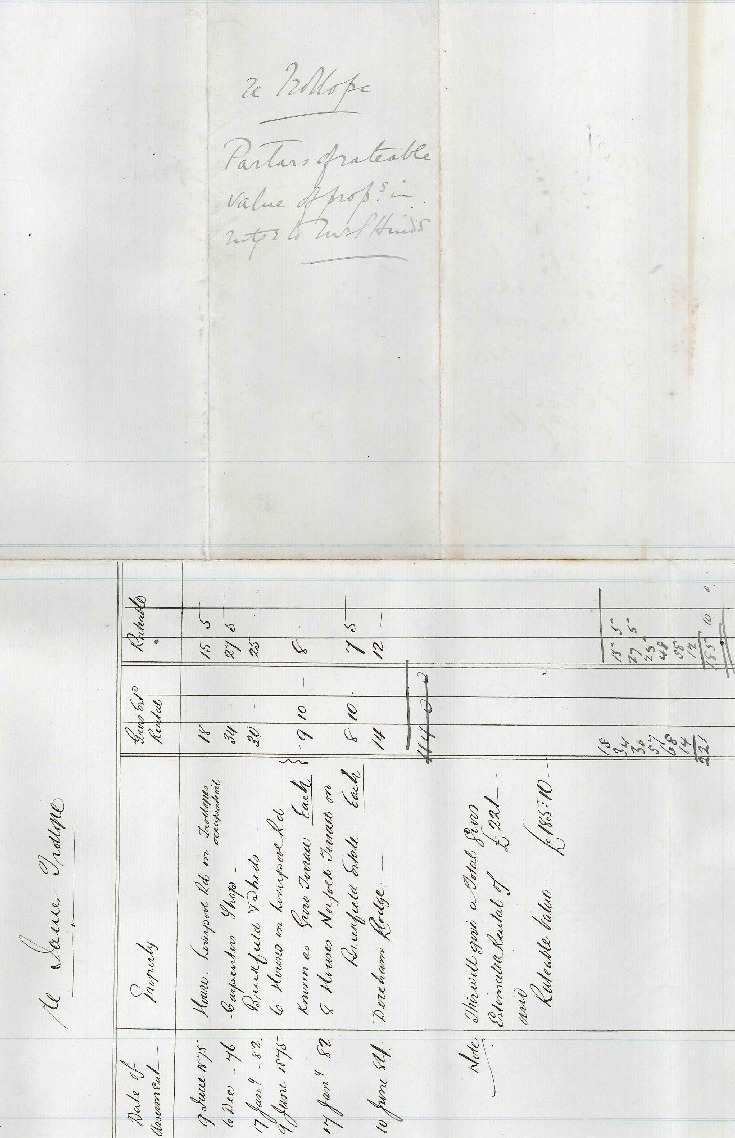 re Trollope
Partars of rateable
value of props in
mtge to Mrs Hinds
re James Trollope
Date of Assessment
Property
Gross Estd Rental
Rateable
9 June 1875 House Liverpool Rd in Trollopes occupation 18 15 5
6 Dec - 76 Carpenters Shop - 34 27 5
17 Jany - 82 Brickfield & Sheds 30 - 25
9 June 1875 6 Houses in Liverpool Rd
known as Terrace Each 9 10 - 8
17 Jany 82 8 Houses Norfolk Terrace on
Brickfield Estate Each 8 10 7 5
10 June 84 Dereham Lodge - 14 12 -
Note This will give a total Gross
Estimated Rental of £221 -
and
Rateable Value £185:10 -
18
34
30
57
68
14
221
15 5
27 5
25
48
58
12
185 10 0